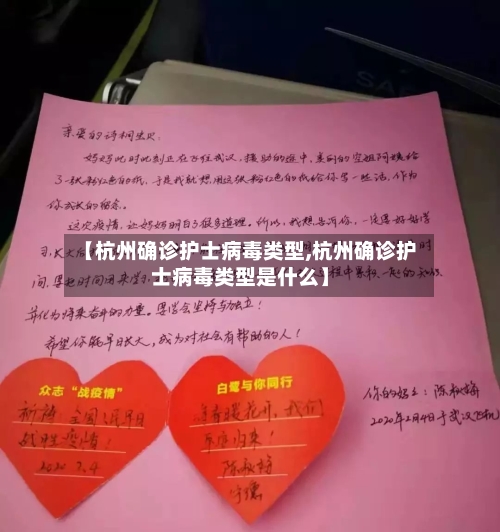 亲爱的诗桐宝贝:
妈妈此时此刻正在飞往武汉,援助的途中,美丽的空姐阿姨给
了一张粉红色的纸,于是我就想用这张粉红色的纸给你写一些话,作为
你成长的留念。
这次疫情,让妈妈明白了很多道理。所以,我想告诉你,一定要好好学
习,长大后
【杭州确诊护士病毒类型,杭州确诊护
士病毒类型是什么】
并化为将来奋斗的力量。要学会坚持与独立!
希望你能早日长大,成为对社会有帮助的人!
你的妈妈:陈淑梅
2020年2月4日于武汉飞机
众志“战疫情”
祈祷:全国人民早日
战胜疫情!
2020.2.4
白鹭与你同行
待春暖花开,我们
平安归来!
陈淑梅